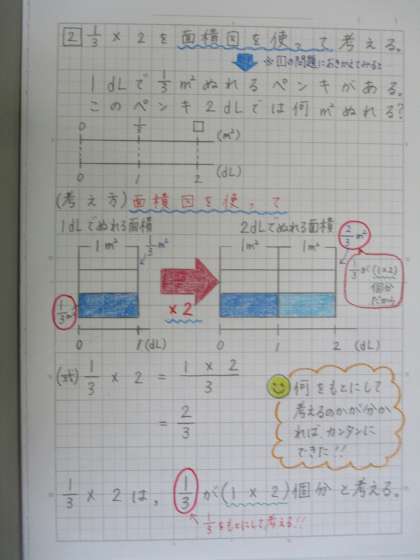 2 1/3 × 2 を面積図を使って考える。
※①の問題におきかえてみると
1dLで 1/3 m²ぬれるペンキがある。
このペンキ2dLでは何m²ぬれる?
0 1/3 □ (m²)
0 1 2 (dL)
(考え方) 面積図を使って
1dLでぬれる面積
2dLでぬれる面積
2/3 m²
1m² 1/3 m²
1m² 1m²
1/3が(1×2)
個分
だから
×2
1/3 m²
0 1 (dL)
0 1 2 (dL)
(式) 1/3 × 2 = 1 × 2 / 3
= 2/3
何をもとにして
考えるのかが分か
れば、カンタンに
できた!!
1/3 × 2 は、 1/3 が (1 × 2) 個分と考える。
1/3をもとにして考える!!